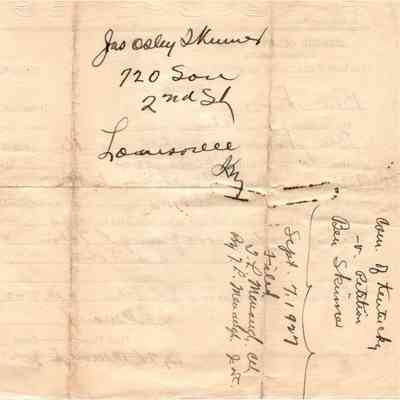 Jas Osley Skinner
720 Sou
2nd St
Louisville
Ky
Com. of Kentucky
-v- Petition
Ben Skinner
Sept. 7, 1927
Filed
By